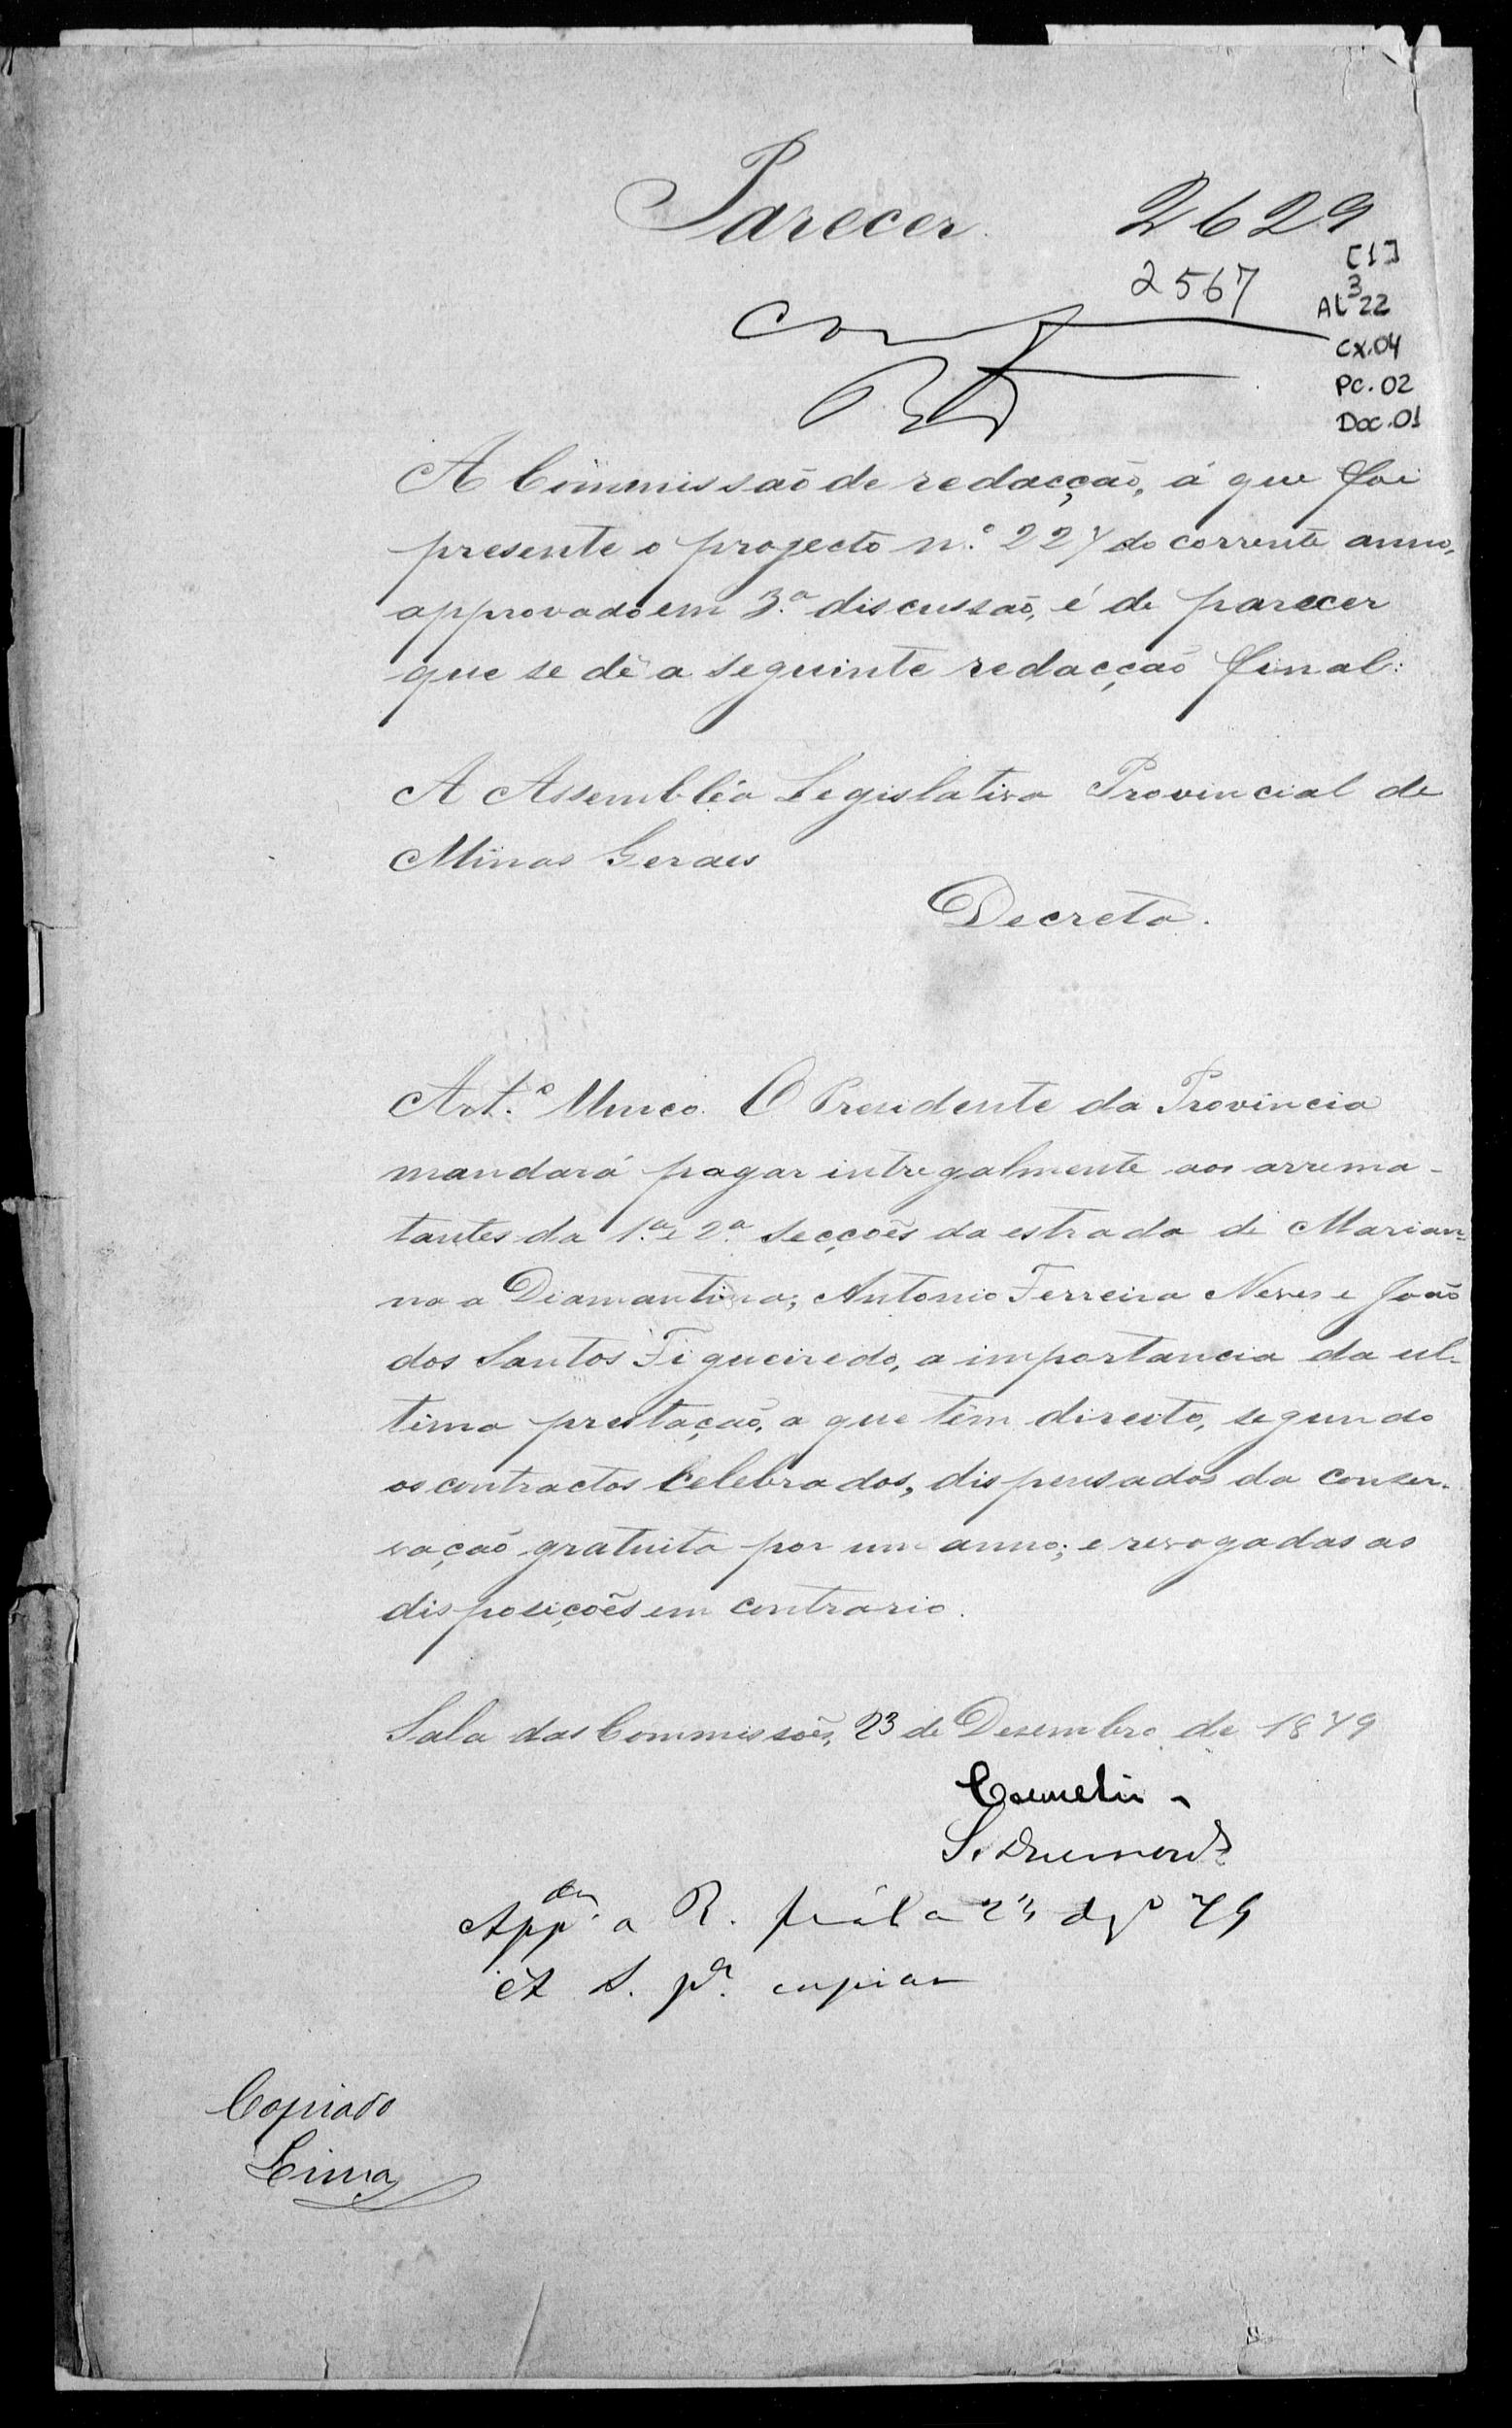 Parecer. 2629
2567
[1]
3
AL 22
CX.04
PC.02
Doc.01
A Commissão de redacção, á que foi
presente o projecto n.º 227 do corrente anno,
approvado em 3.ª discussão, é de parecer
que se dê a seguinte redacção final:
A Assembléa Legislativa Provincial de
Minas Geraes
Decreta.
Art.º Unico. O Presidente da Provincia
mandará pagar integralmente aos arrema-
tantes da 1.ª e 2.ª Secções da estrada de Marian-
na a Diamantina; Antonio Ferreira Neves e João
dos Santos Figueiredo, a importancia da ul-
tima prestação, a que têm direito, segundo
os contractos celebrados, dispensados da conser-
vação gratuita por um anno; e revogadas as
disposições em contrario.
Sala das Commissões, 23 de Desembro de 1879
S. Drumond
App.da a R. final a 23 dzº 79
Á S. pª. copiar
Copiado
Lima